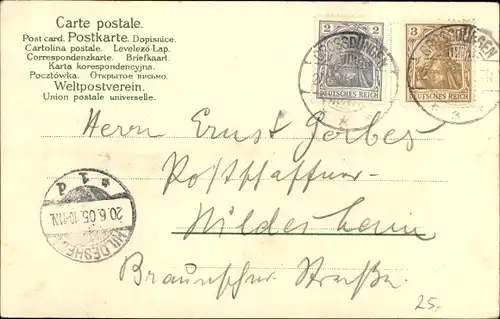 Carte postale.
Post card. Postkarte. Dopisnice.
Cartolina postale. Levelező-Lap.
Correspondenzkarte. Briefkaart.
Karta korespondencyjna.
Pocztówka. Открытое письмо.
Weltpostverein.
Union postale universelle.
2 2
DEUTSCHES REICH
3
DEUTSCHES REICH
GROSSDÜNGEN
GROSSDÜNGEN
Herrn Ernst Gerbes
Postschaffner
Hildesheim
Braunschw. Straße
* 1 d
20.6.05.10-11N.
HILDESHEIM
25.